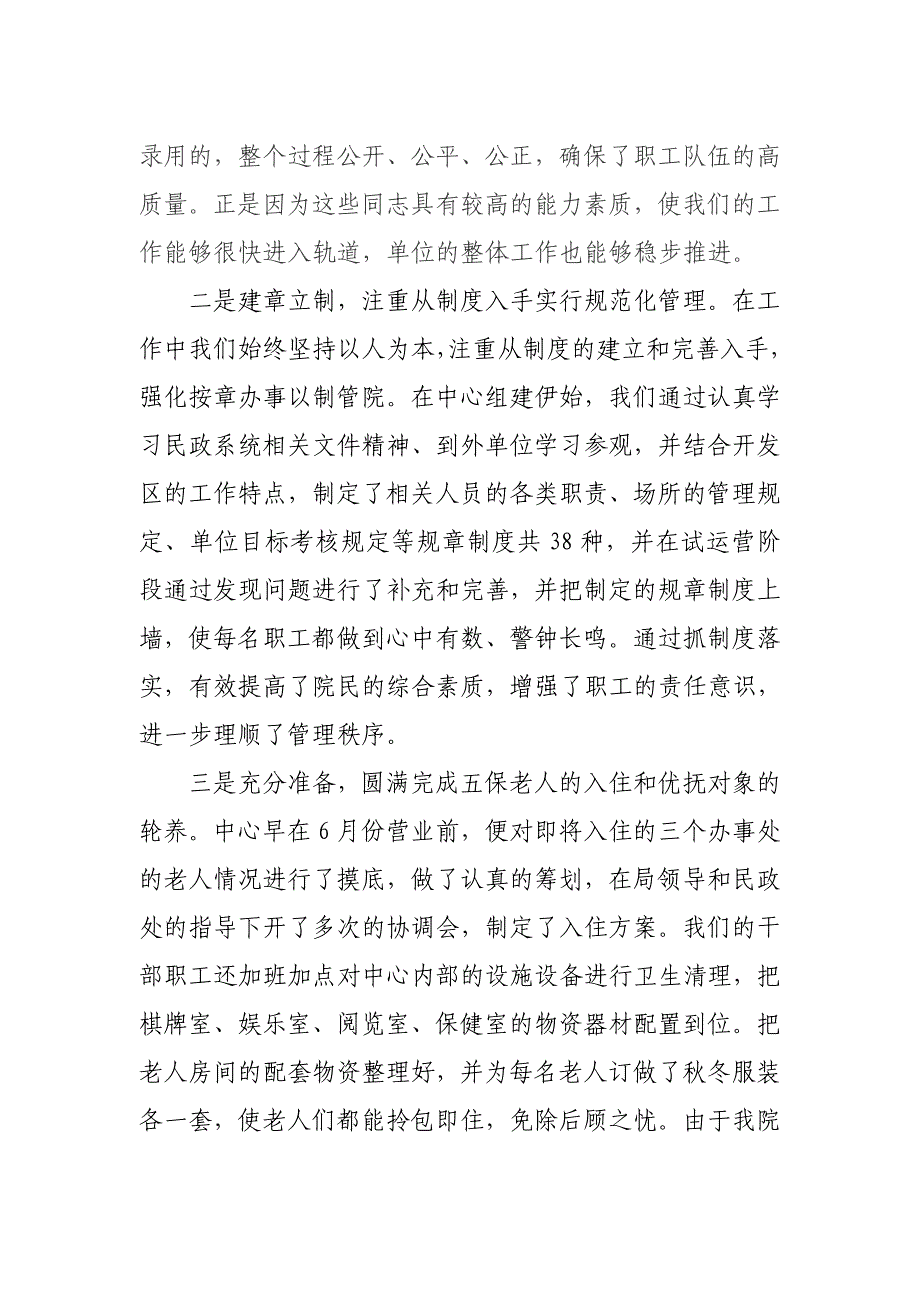 录用的，整个过程公开、公平、公正，确保了职工队伍的高
质量。正是因为这些同志具有较高的能力素质，使我们的工
作能够很快进入轨道，单位的整体工作也能够稳步推进。
二是建章立制，注重从制度入手实行规范化管理。在工
作中我们始终坚持以人为本，注重从制度的建立和完善入手，
强化按章办事以制管院。在中心组建伊始，我们通过认真学
习民政系统相关文件精神、到外单位学习参观，并结合开发
区的工作特点，制定了相关人员的各类职责、场所的管理规
定、单位目标考核规定等规章制度共 38 种，并在试运营阶
段通过发现问题进行了补充和完善，并把制定的规章制度上
墙，使每名职工都做到心中有数、警钟长鸣。通过抓制度落
实，有效提高了院民的综合素质，增强了职工的责任意识，
进一步理顺了管理秩序。
三是充分准备，圆满完成五保老人的入住和优抚对象的
轮养。中心早在 6 月份营业前，便对即将入住的三个办事处
的老人情况进行了摸底，做了认真的筹划，在局领导和民政
处的指导下开了多次的协调会，制定了入住方案。我们的干
部职工还加班加点对中心内部的设施设备进行卫生清理，把
棋牌室、娱乐室、阅览室、保健室的物资器材配置到位。把
老人房间的配套物资整理好，并为每名老人订做了秋冬服装
各一套，使老人们都能拎包即住，免除后顾之忧。由于我院